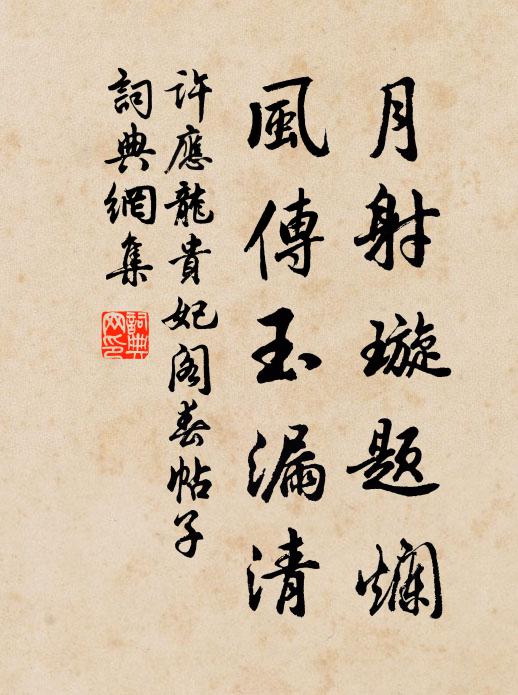 月射璇题爛
風傳玉漏清
許應龍貴妃阁春帖子
詞典網集
詞典網印